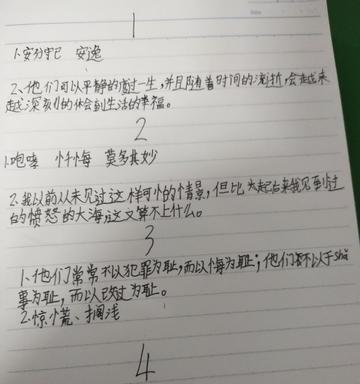 1
1.安分守己 安逸
2、他们可以平静的度过一生,并且随着时间的流逝,会越来
越深刻的体会到生活的幸福。
2
1.咆哮 忏悔 莫名其妙
2.我以前从未见过这样可怕的情景,但比起后来我见到过
的愤怒的大海,这又算不上什么。
3
1、他们常常不以犯罪为耻,而以悔为耻;他们不以干shǎ
事为耻,而以改过为耻。
2.惊慌、搁浅
4